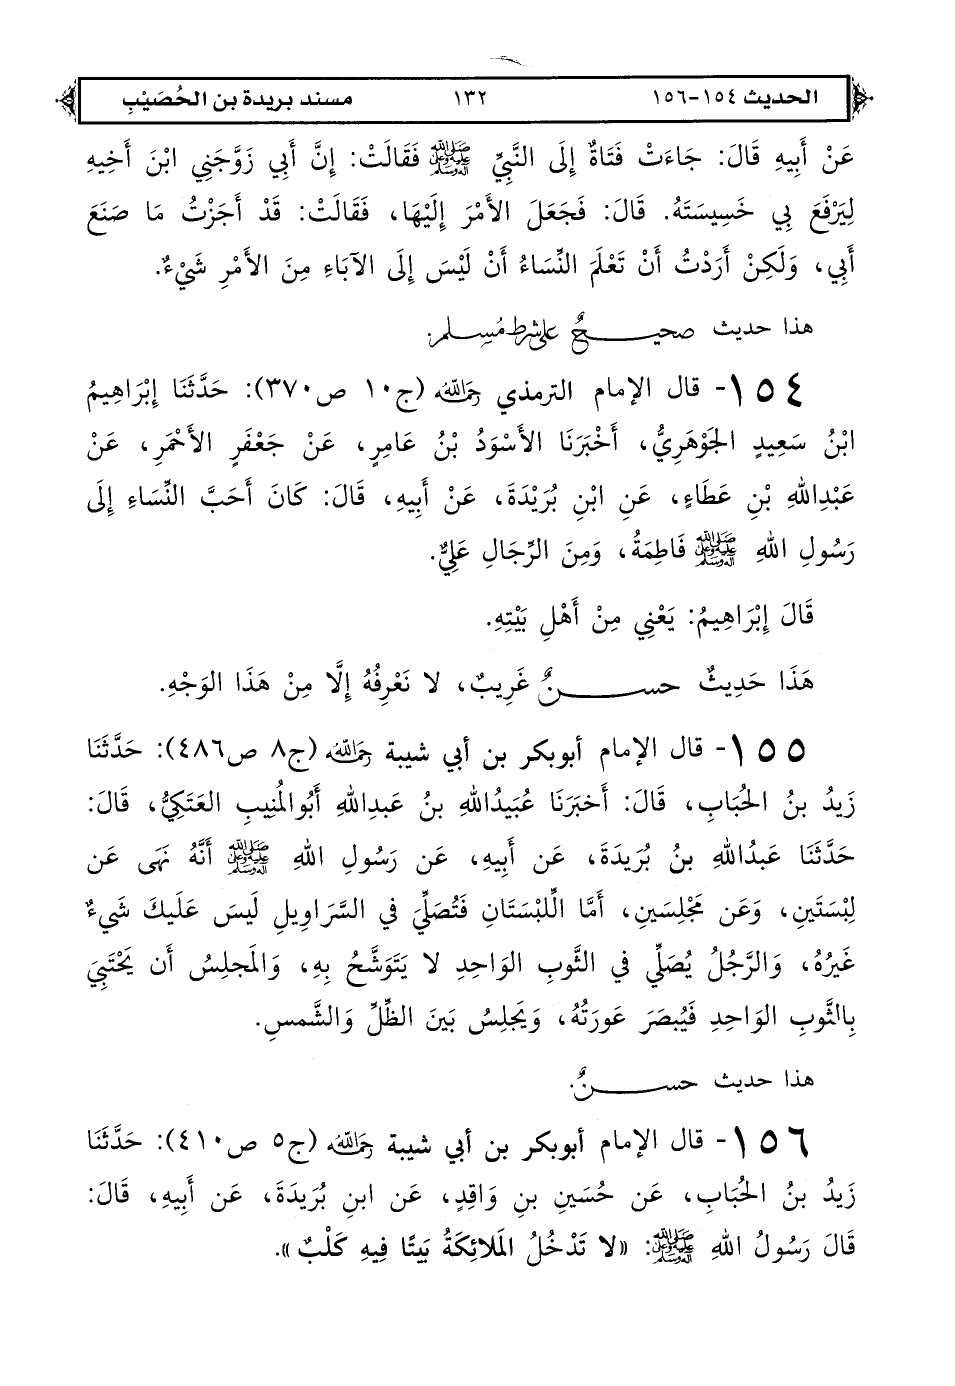 الحديث ١٥٤-١٥٦ ١٣٢ مسند بريدة بن الحُصَيْبِ
عَنْ أَبِيهِ قَالَ: جَاءَتْ فَتَاةٌ إِلَى النَّبِيِّ ﷺ فَقَالَتْ: إِنَّ أَبِي زَوَّجَنِي ابْنَ أَخِيهِ
لِيَرْفَعَ بِي خَسِيسَتَهُ. قَالَ: فَجَعَلَ الأَمْرَ إِلَيْهَا، فَقَالَتْ: قَدْ أَجَزْتُ مَا صَنَعَ
أَبِي، وَلَكِنْ أَرَدْتُ أَنْ تَعْلَمَ النِّسَاءُ أَنْ لَيْسَ إِلَى الآبَاءِ مِنَ الأَمْرِ شَيْءٌ.
هذا حديث صحيحٌ على شرط مُسلم.
١٥٤- قال الإمام الترمذي رحمه الله (ج١٠ ص٣٧٠): حَدَّثَنَا إِبْرَاهِيمُ
ابْنُ سَعِيدٍ الجَوْهَرِيُّ، أَخْبَرَنَا الأَسْوَدُ بْنُ عَامِرٍ، عَنْ جَعْفَرٍ الأَحْمَرِ، عَنْ
عَبْدِاللهِ بْنِ عَطَاءٍ، عَنِ ابْنِ بُرَيْدَةَ، عَنْ أَبِيهِ، قَالَ: كَانَ أَحَبَّ النِّسَاءِ إِلَى
رَسُولِ اللهِ ﷺ فَاطِمَةُ، وَمِنَ الرِّجَالِ عَلِيٌّ.
قَالَ إِبْرَاهِيمُ: يَعْنِي مِنْ أَهْلِ بَيْتِهِ.
هَذَا حَدِيثٌ حسنٌ غَرِيبٌ، لا نَعْرِفُهُ إِلَّا مِنْ هَذَا الوَجْهِ.
١٥٥- قال الإمام أبوبكر بن أبي شيبة رحمه الله (ج٨ ص٤٨٦): حَدَّثَنَا
زَيدُ بنُ الحُبَابِ، قَالَ: أَخبَرَنَا عُبَيدُاللهِ بنُ عَبدِاللهِ أَبُوالمُنِيبِ العَتَكِيُّ، قَالَ:
حَدَّثَنَا عَبدُاللهِ بنُ بُرَيدَةَ، عَن أَبِيهِ، عَن رَسُولِ اللهِ ﷺ أَنَّهُ نَهَى عَن
لِبْسَتَينِ، وَعَن مَجْلِسَينِ، أَمَّا اللِّبْسَتَانِ فَتُصَلِّيَ في السَّرَاوِيلِ لَيسَ عَلَيكَ شَيءٌ
غَيرُهُ، وَالرَّجُلُ يُصَلِّي في الثَّوبِ الوَاحِدِ لا يَتَوَشَّحُ بِهِ، وَالمَجلِسُ أَن يَحْتَبِيَ
بِالثَّوبِ الوَاحِدِ فَيُبصَرَ عَورَتُهُ، وَيَجلِسُ بَينَ الظِّلِّ وَالشَّمسِ.
هذا حديث حسنٌ.
١٥٦- قال الإمام أبوبكر بن أبي شيبة رحمه الله (ج٥ ص٤١٠): حَدَّثَنَا
زَيدُ بنُ الحُبَابِ، عَن حُسَينِ بنِ وَاقِدٍ، عَن ابنِ بُرَيدَةَ، عَن أَبِيهِ، قَالَ:
قَالَ رَسُولُ اللهِ ﷺ: «لا تَدْخُلُ المَلائِكَةُ بَيتًا فِيهِ كَلْبٌ».